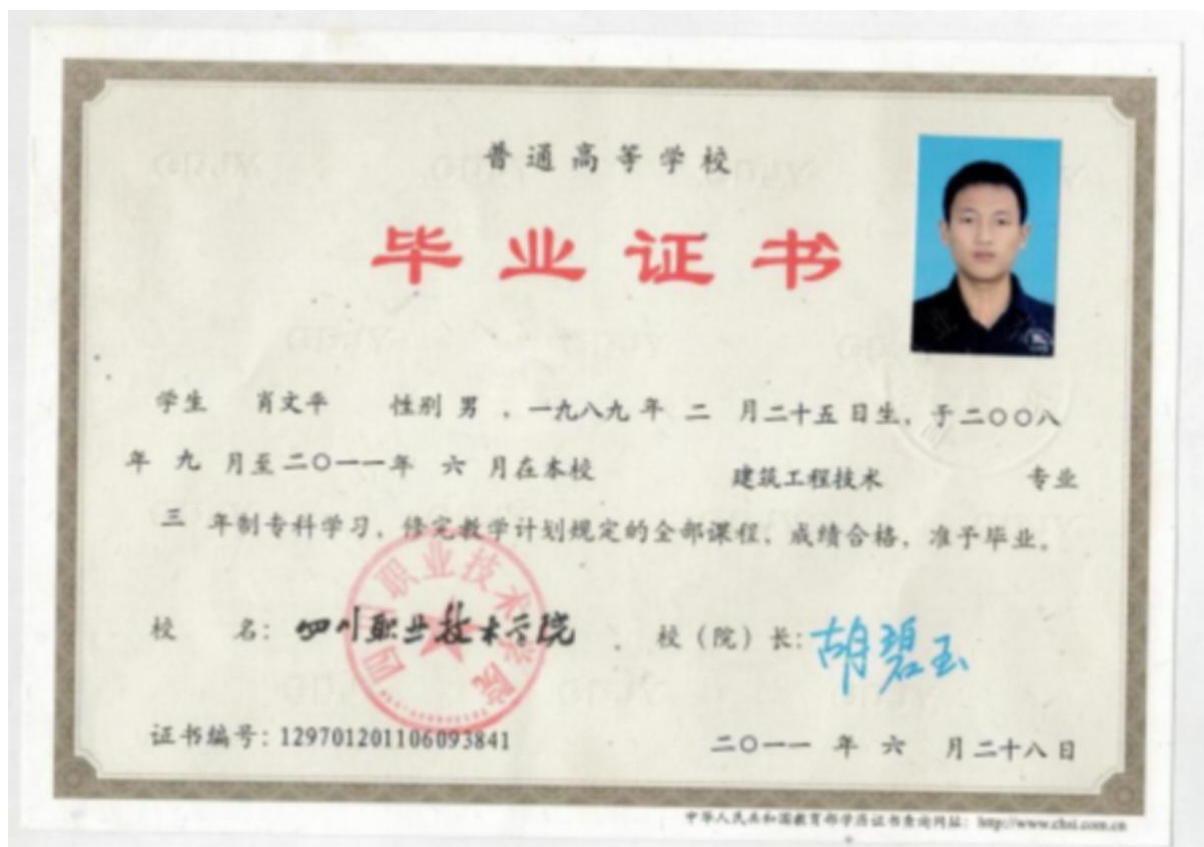 普通高等学校
毕业证书
学生 肖文平 性别 男 ，一九八九 年 二 月二十五日生，于二〇〇八
年 九 月至二〇一一年 六 月在本校 建筑工程技术 专业
三 年制专科学习，修完教学计划规定的全部课程，成绩合格，准予毕业。
校 名：四川职业技术学院 校（院）长：胡碧玉
四川职业技术学院
证书编号：129701201106093841 二〇一一 年 六 月二十八日
中华人民共和国教育部学历证书查询网址：http://www.chsi.com.cn